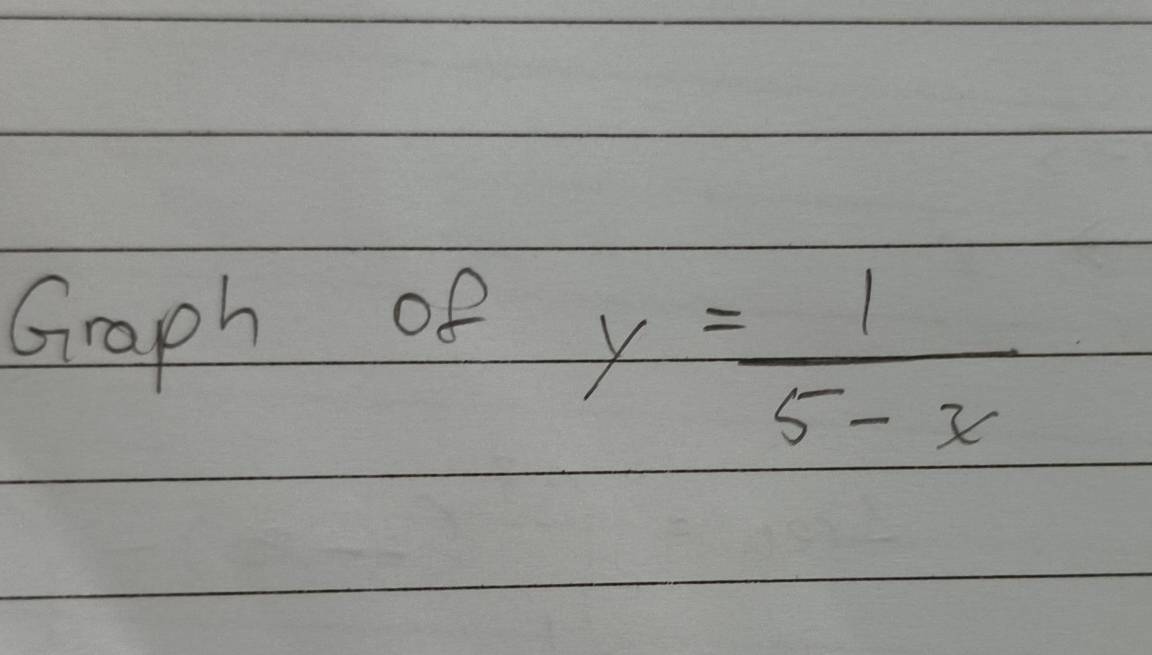 Graph of y = 1 / 5 - x